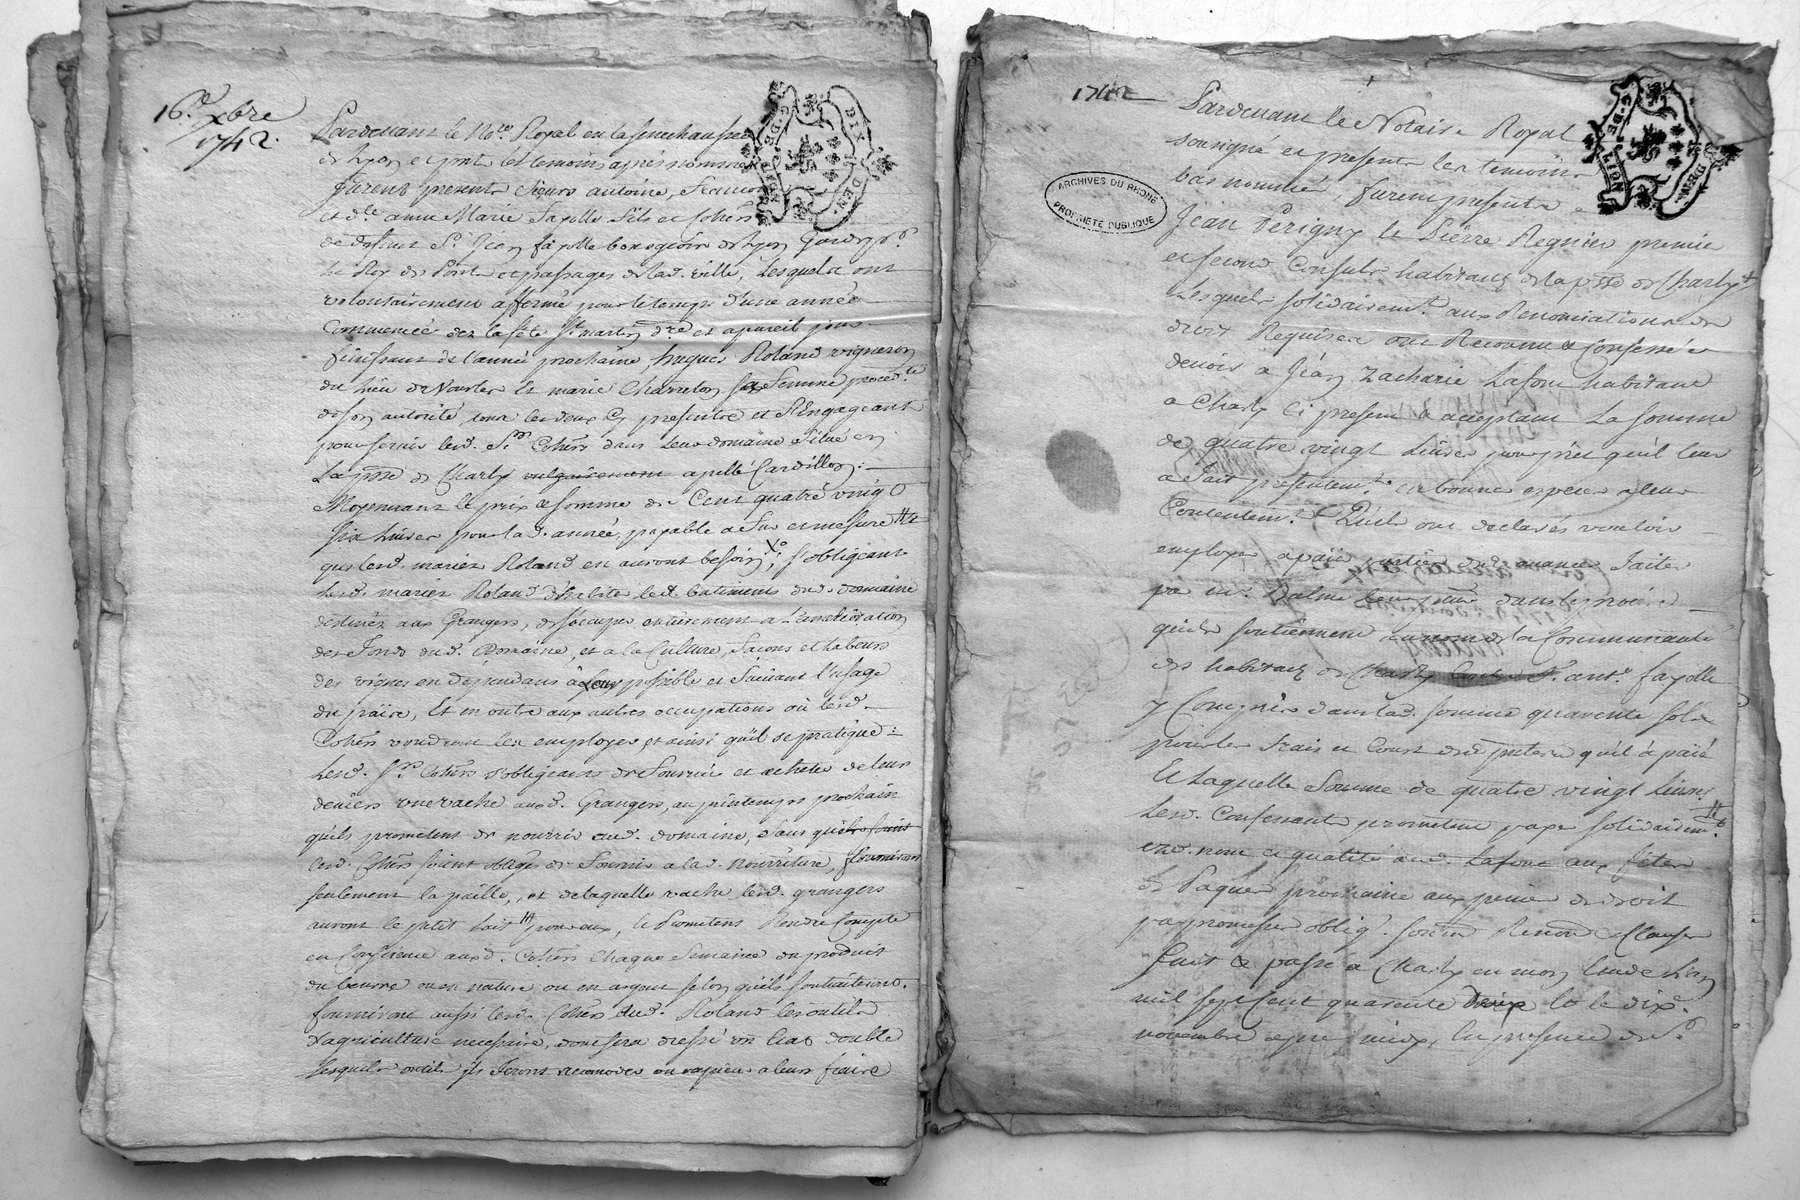 16e xbre
1742.
Pardevant le No.re Royal en la senechaussée
de Lyon et les temoins apres nommés
furent presents sieurs antoine, francois
et d.lle anne Marie fayolle fils et cohers
de defunt S.r Jean fayolle bourgeois de Lyon
le Roy des Ponts et passages de lad. ville, lesquels ont
volontairement affermé pour le temps d'une année
commencée dez la fete St martin d.re et a pareil jour
finissant de l'année prochaine, hugues Roland vigneron
du lieu de Vourles et marie Charreton sa femme proced.te
de son autorité, tous les deux cy presents et s'engageant
pour servir lesd. S.rs Cohers dans leur domaine situé en
La p.sse de Charly vulgairement apellé Cardillon:
Moyennant le prix et somme de Cent quatre vingt
six livres pour lad. année, payable a fur et mesure
que lesd. mariez Roland en auront besoin; s'obligeant
Lesd. mariez Roland d'habiter led. batiments dud. domaine
destinez aux Grangers, de s'occuper entierement a l'amelioration
des fonds dud. Domaine, et a la Culture, façons et labeurs
des vignes en dependans a leur possible et suivant l'usage
du païs, Et en outre aux autres occupations où lesd.
Cohers voudront les employer et ainsi qu'il se pratique:
Lesd. Srs. Cohers s'obligeans de fournir et acheter de leurs
deniers une vache auxd. Grangers, au printemps prochain
qu'ils prometent de nourrir aud. domaine, sans que
lesd. Cohers soient obligés de fournir a lad. nourriture, fournissant
seulement la paille, et de laquelle vache lesd. grangers
auront le petit lait pour eux, et prometent rendre Compte
en Conscience auxd. Cohers Chaque Semaine du produit
du beurre ou en nature ou en argent selon qu'ils souhaiteront.
fourniront aussi lesd. Cohers aud. Roland les outils
d'agriculture necessaire, dont sera dressé un etat double
lesquels outils ils feront racomoder ou a leurs fraix
G. DE LYON
DIX DEN.
1742
ARCHIVES DU RHONE
PROPRIÉTÉ PUBLIQUE
Pardevant le Notaire Royal
sousigné et presents les temoins
bas nommés, furent presents
Jean Perigny le Pierre Regnier premier
et second Consuls habitans de la p.sse de Charly
Lesquels solidairem.t aux Renonciations de
droit Requises ont Reconnu & Confessé
devoir a Jean Zacharie Lafont habitant
a Charly Ci present & aceptant La somme
de quatre vingt Livres pour prêt qu'il leur
a fait presentem.t en bonne espece a leur
Contentem.t Qu'ils ont declarés vouloir
employer a païer partie des avances faites
par M.r Balme dans le procès
qu'ils soutiennent au nom de la Communauté
des habitans de Charly Contre S.r ant.e fayolle
y Compris dans lad. somme quarente sols
pour les frais et Cout qu'il a païé
Et Laquelle Somme de quatre vingt Livres
Lesd. Confessants promettent payer solidairem.t
aud. nom et qualité aud. Lafont aux fêtes
de Paques prochaine aux peine de droit
par promesse oblig. Renon & Clauses
fait & passé a Charly en mon Etude l'an
mil sept cent quarente deux & le dix.e
novembre apres midy, En presence de S.r
G. DE LYON